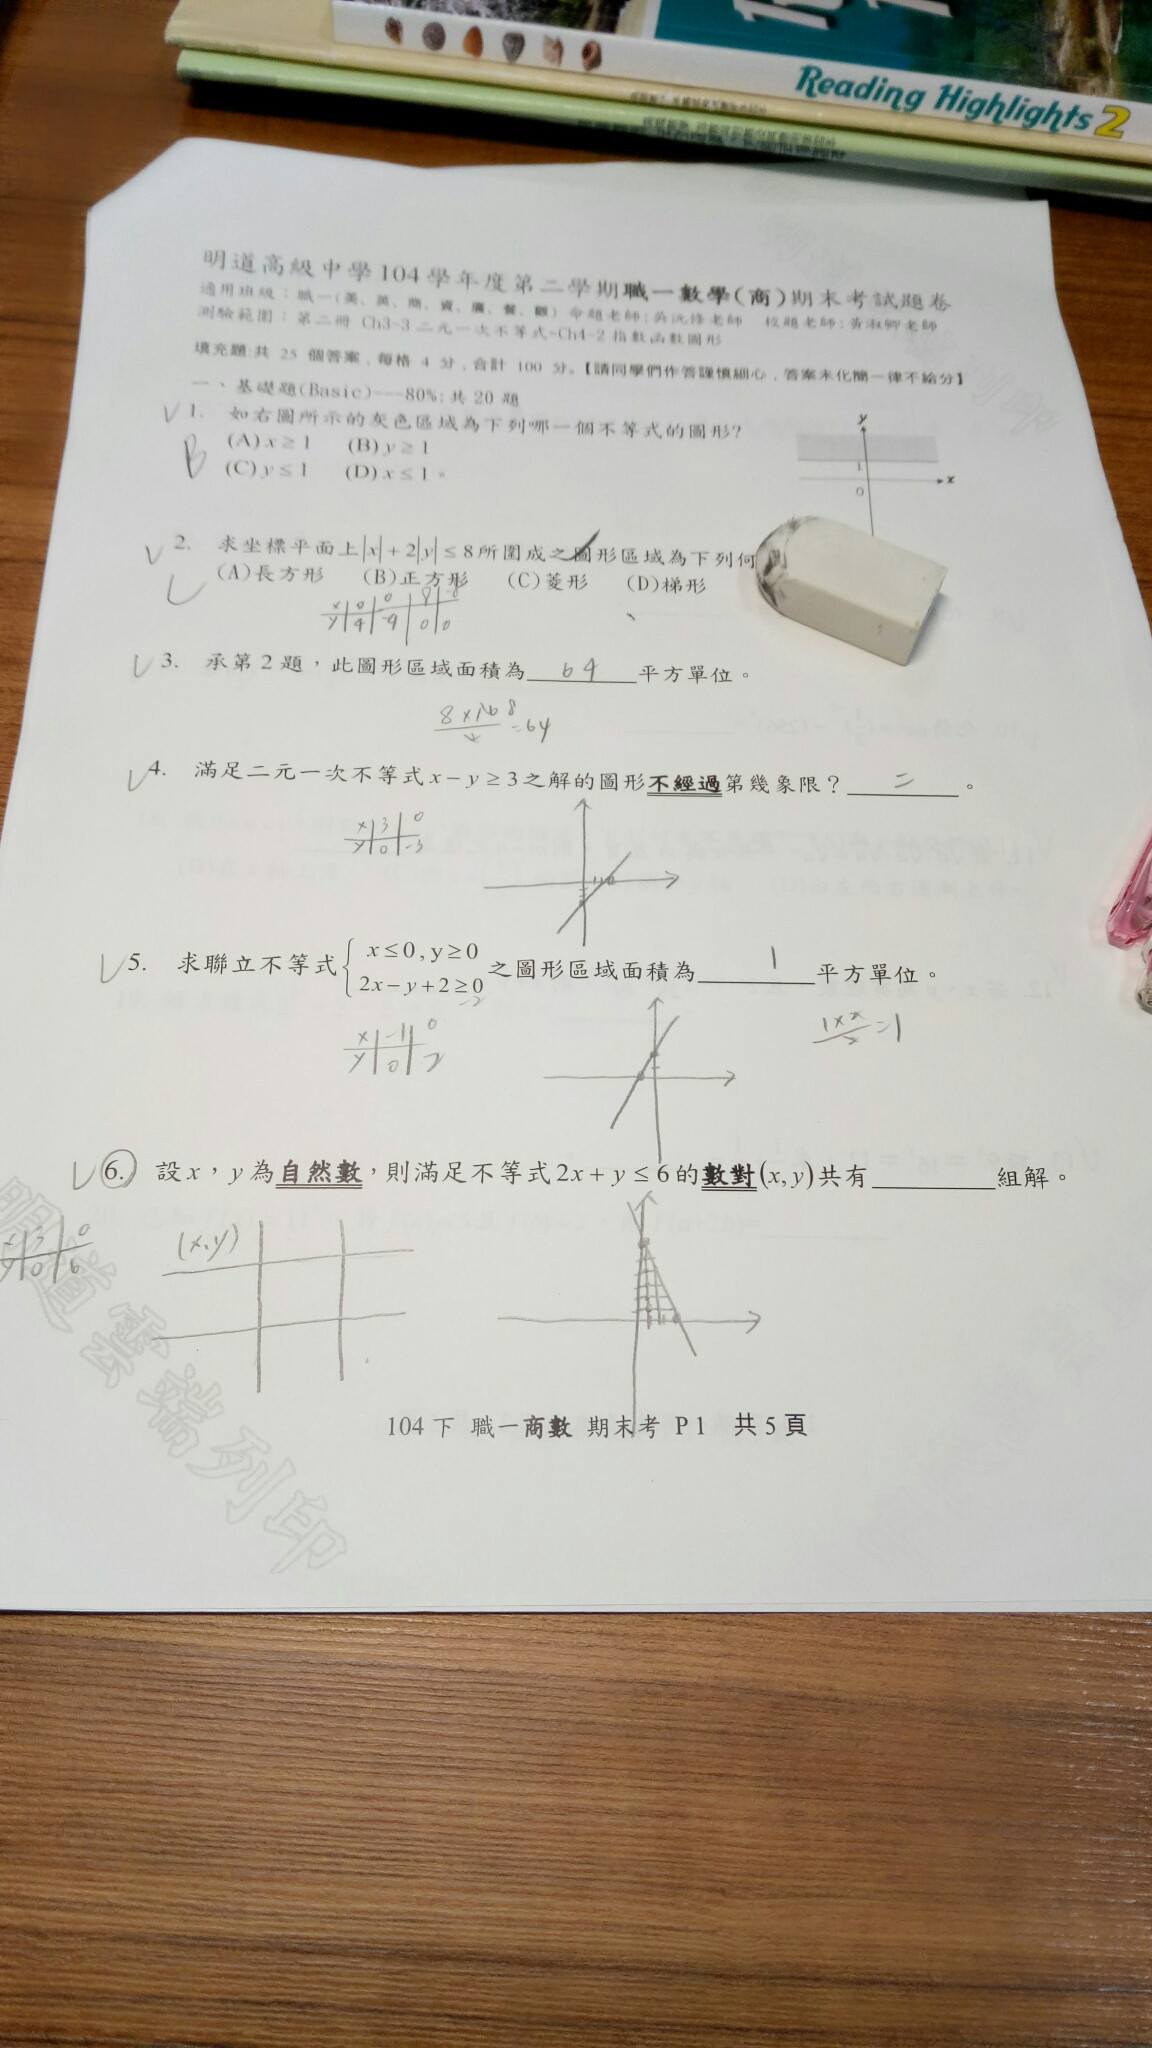 Reading Highlights 2
明道高級中學104學年度第二學期職一數學(商)期末考試題卷
適用班級：職一(美、英、商、資、廣、餐、觀) 命題老師:吳沅修老師 校題老師:黃淑卿老師
測驗範圍：第二冊 Ch3-3 二元一次不等式~Ch4-2 指數函數圖形
填充題:共 25 個答案，每格 4 分，合計 100 分。【請同學們作答謹慎細心，答案未化簡一律不給分】
一、基礎題(Basic)---80%:共20題
1. 如右圖所示的灰色區域為下列哪一個不等式的圖形?
B
(A) x ≥ 1 (B) y ≥ 1
(C) y ≤ 1 (D) x ≤ 1。
y
1
0
x
2. 求坐標平面上|x|+2|y|≤8所圍成之圖形區域為下列何
(A)長方形 (B)正方形 (C)菱形 (D)梯形
x 0 0 8 -8
y 4 -4 0 0
3. 承第2題，此圖形區域面積為 64 平方單位。
8×16 8
=64
4. 滿足二元一次不等式 x−y≥3之解的圖形不經過第幾象限？ 二 。
x 3 0
y 0 -3
5. 求聯立不等式{ x≤0, y≥0
2x−y+2≥0 之圖形區域面積為 1 平方單位。
-2
x -1 0
y 0 2
1×2
=1
2
6. 設x，y為自然數，則滿足不等式2x+y≤6的數對(x,y)共有 組解。
x 3 0
y 0 6
(x,y)
104下 職一商數 期末考 P1 共5頁
明道雲端列印